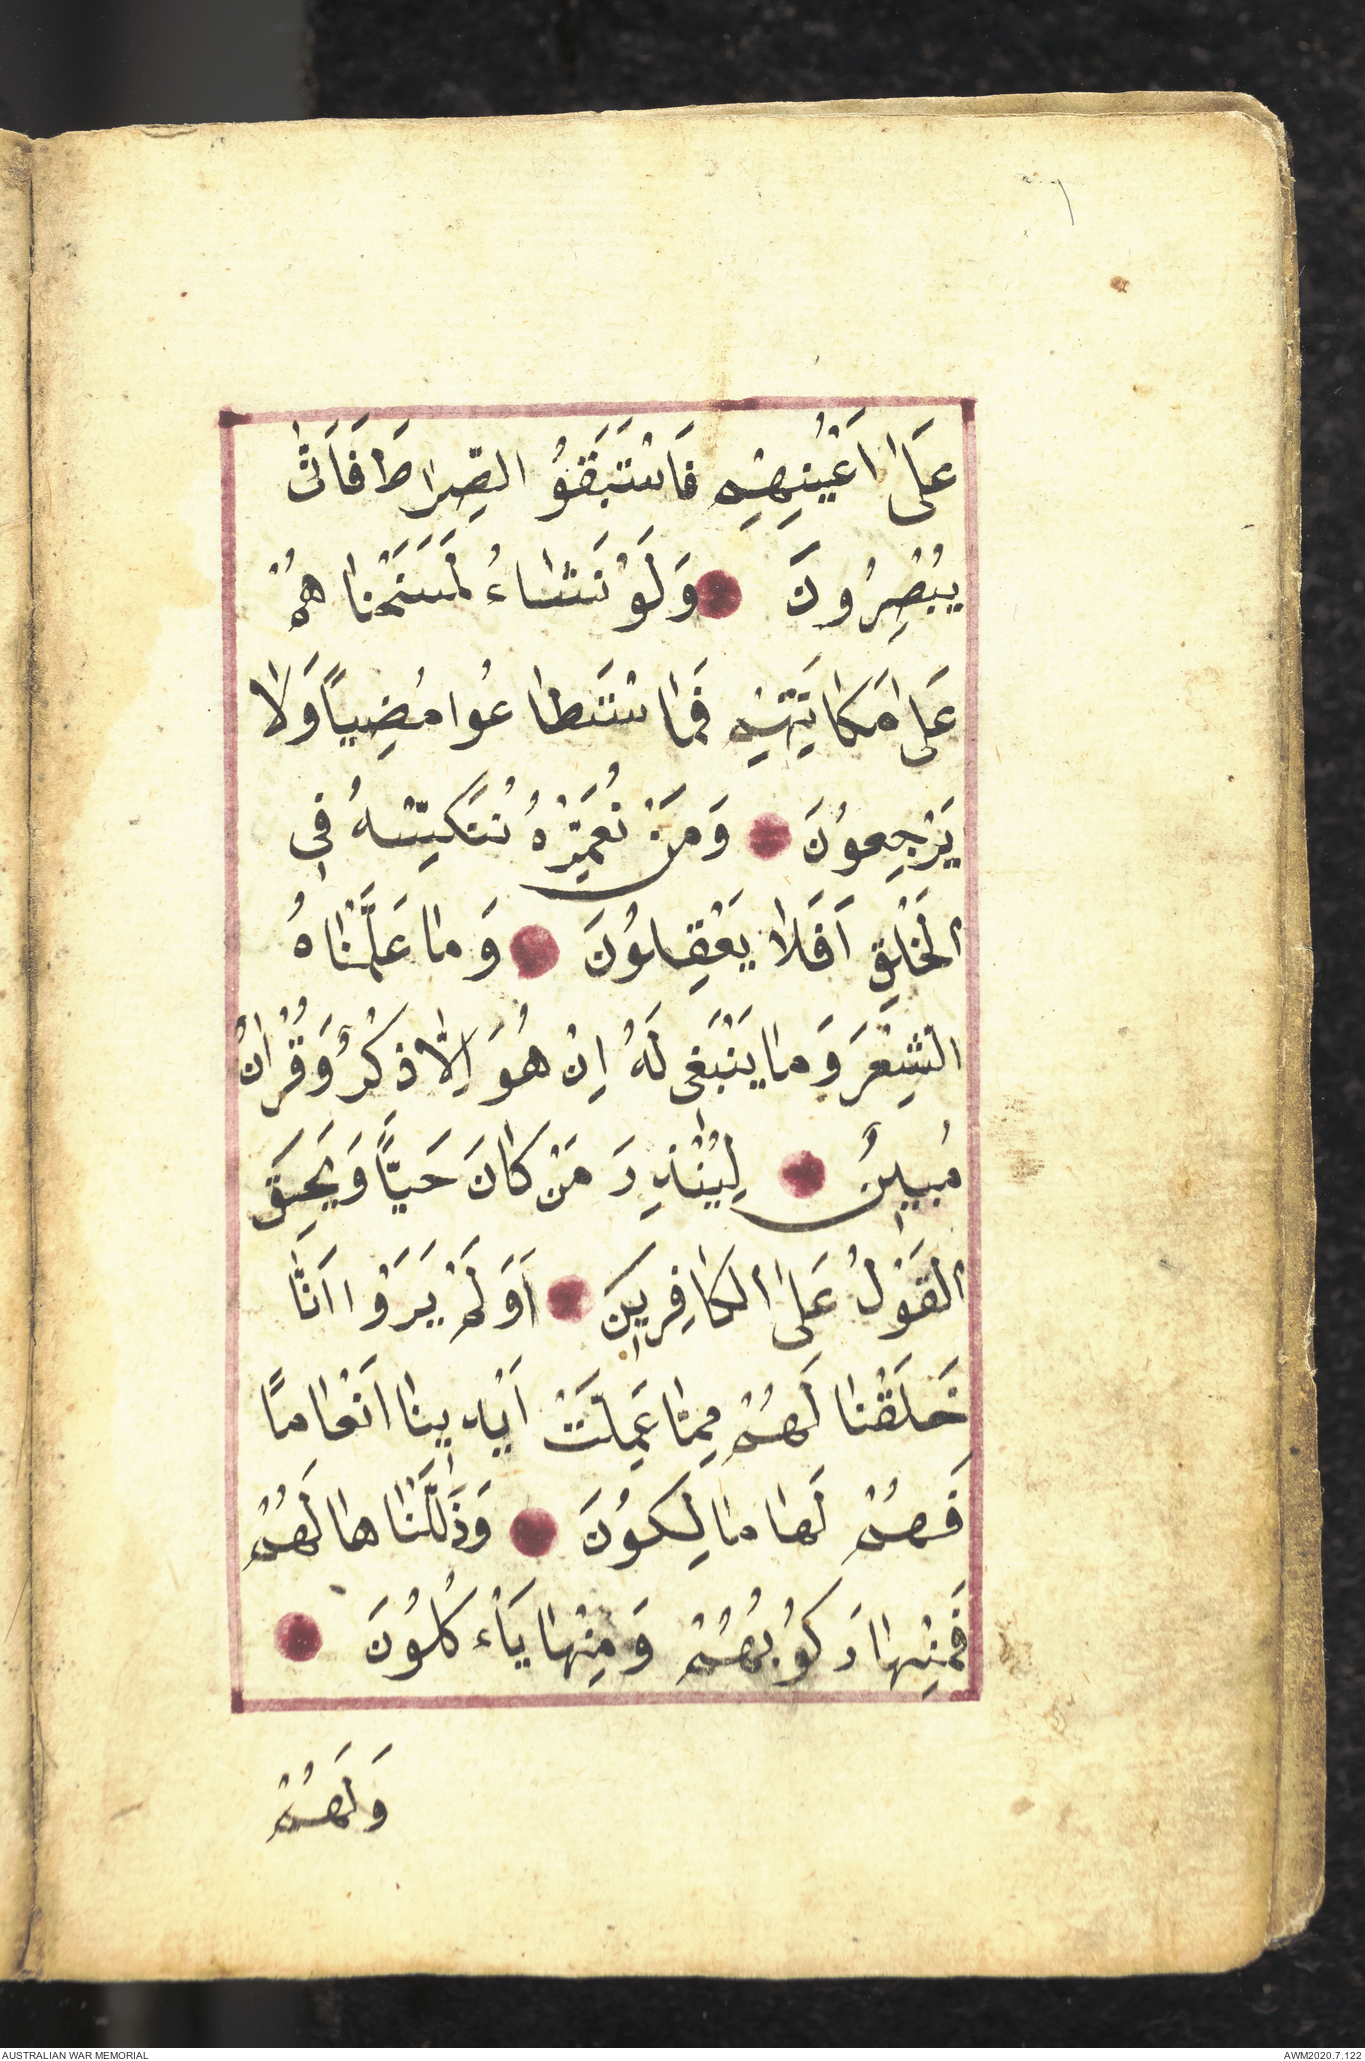 عَلٰى اَعْيُنِهِمْ فَاسْتَبَقُوُ الصِّرٰاطَ فَاَنّٰى
يُبْصِرُونَ وَلَوْ نَشٰاءُ لَمَسَخْنٰا هُمْ
عَلٰى مَكٰانَتِهِمْ فَمَا اسْتَطٰاعُوا مُضِياًّ وَلٰا
يَرْجِعوُنَ وَمَنْ نُعَمِّرْهُ نُنَكِّسْهُ فِي
الْخَلْقِ اَفَلٰا يَعْقِلوُنَ وَمٰا عَلَّمْنٰاهُ
الشِّعْرَ وَمٰا يَنْبَغى لَهُ اِنْ هُوَ اِلّٰا ذِكْرٌ وَقُرْاٰنٌ
مُبيٖنٌ لِيُنْذِرَ مَنْ كٰانَ حَيًّا وَيَحِقَّ
الْقَوْلُ عَلٰى الْكٰافِرٖينَ اَوَلَمْ يَرَوْا اَنّٰا
خَلَقْنٰا لَهُمْ مِمّٰا عَمِلَتْ اَيْدٖينٰا اَنْعٰامًا
فَهُمْ لَهٰا مٰالِكوُنَ وَذَلَّلْنٰاهٰا لَهُمْ
فَمِنْهٰا رَكوُبُهُمْ وَمِنْهٰا يَاْءكُلوُنَ
وَلَهُمْ
AUSTRALIAN WAR MEMORIAL
AWM2020.7.122